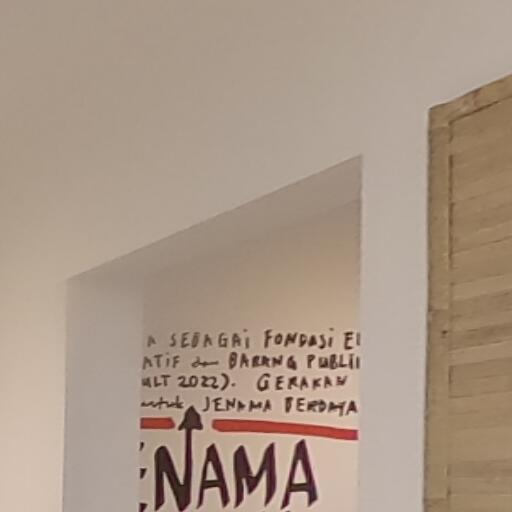 A SEBAGAI FONDASI E
ATIF dan BARANG PUBLI
ULT 2022). GERAKAN
untuk JENAMA BERDAYA
ENAMA